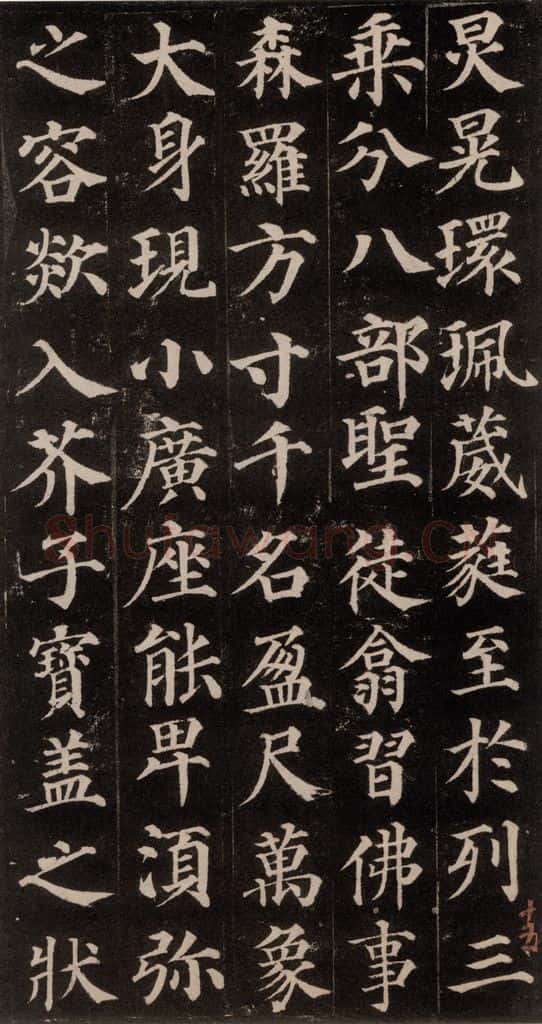 炅晃環珮葳蕤至於列三
乘分八部聖徒翕習佛事
森羅方寸千名盈尺萬象
大身現小廣座能卑須弥
之容欻入芥子寶盖之狀
shufawang.cn